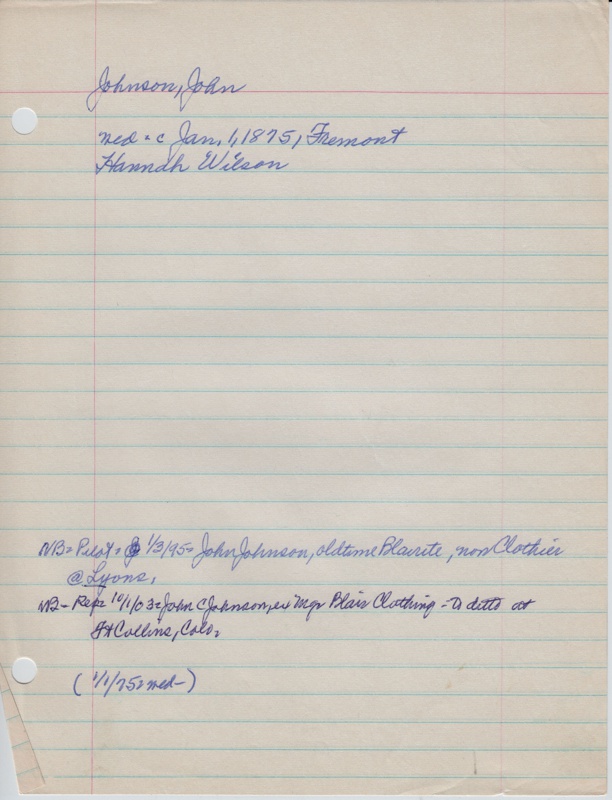 Johnson, John
wed - c Jan. 1, 1875, Fremont
Hannah Wilson
NB = Pilot = 1/3/95 = John Johnson, oldtime Blairite, now Clothier
@ Lyons.
NB - Rep = 10/1/03 = John C Johnson, ex Mgr Blair Clothing - to ditto at
Ft Collins, Colo.
(1/1/75 = wed -)